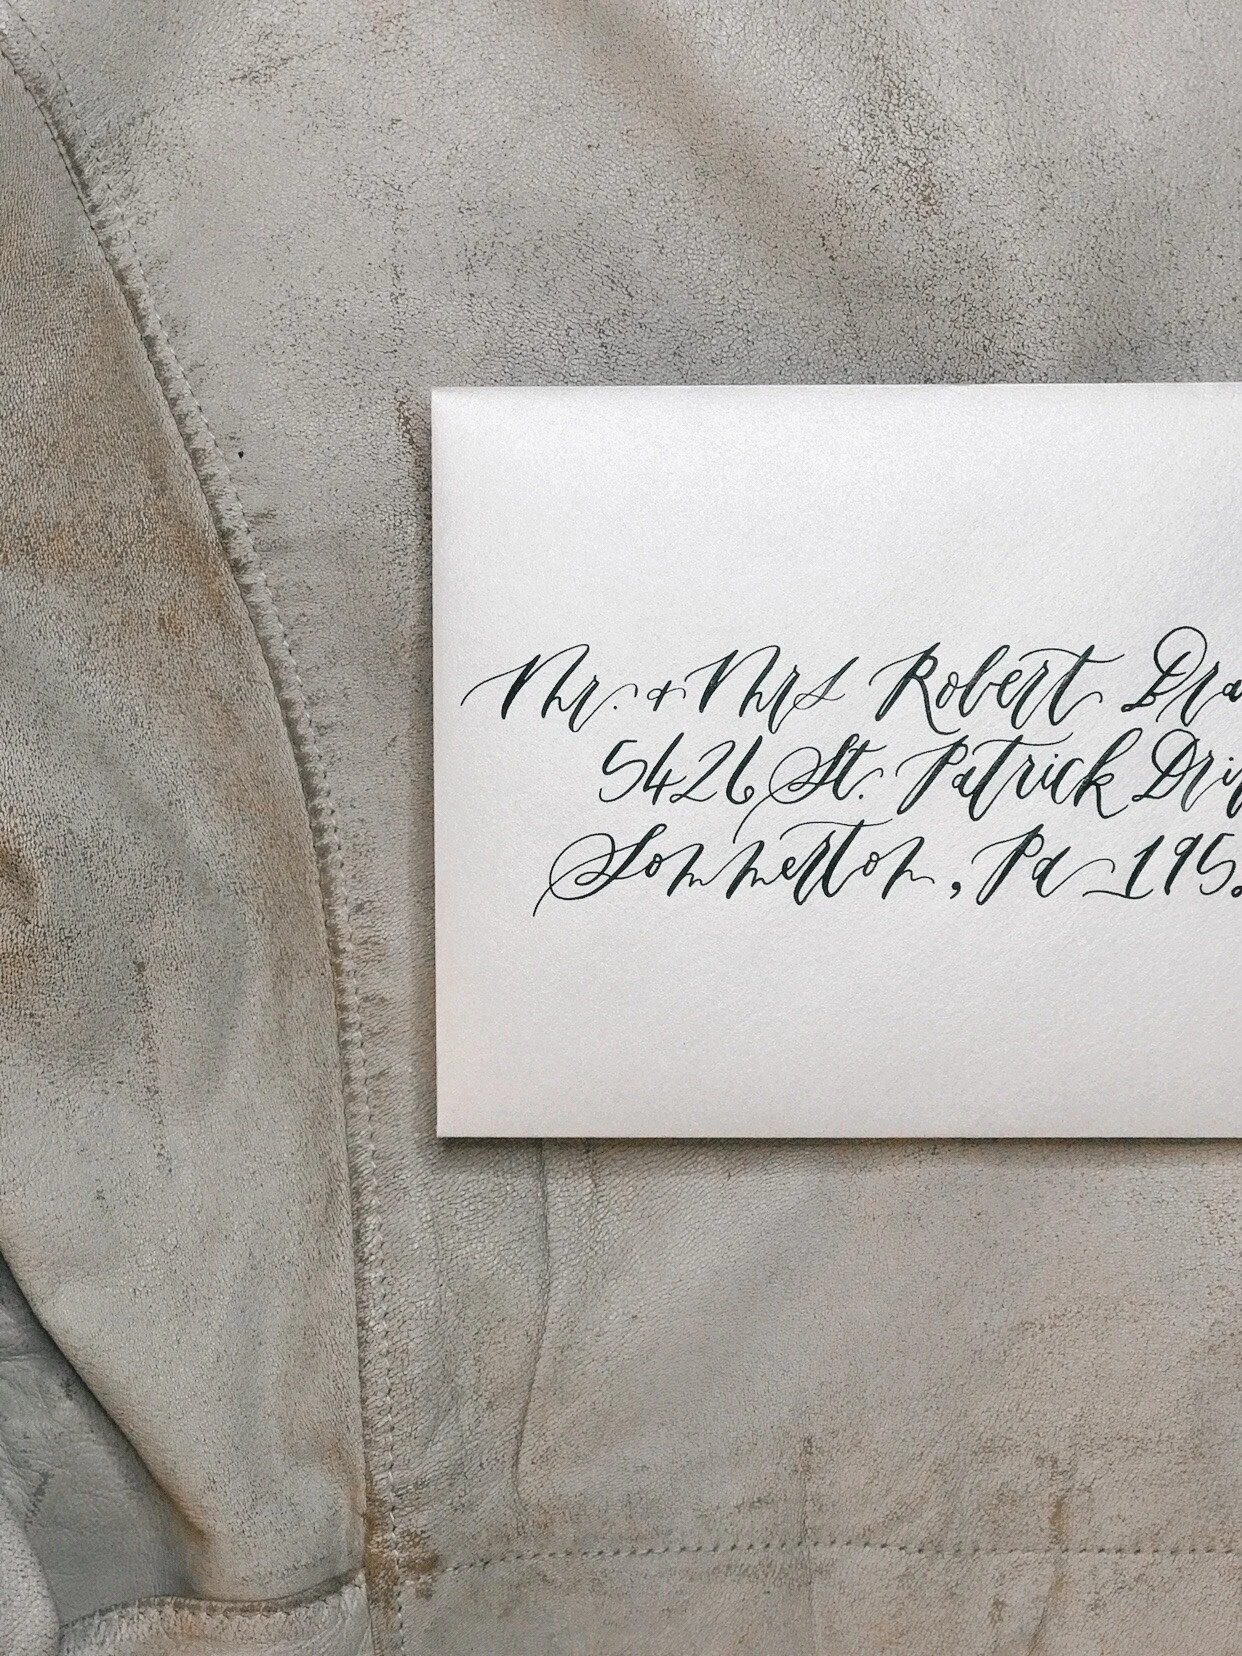 Mr. + Mrs Robert Dra
5426 St. Patrick Dri
Sommerton, Pa 195